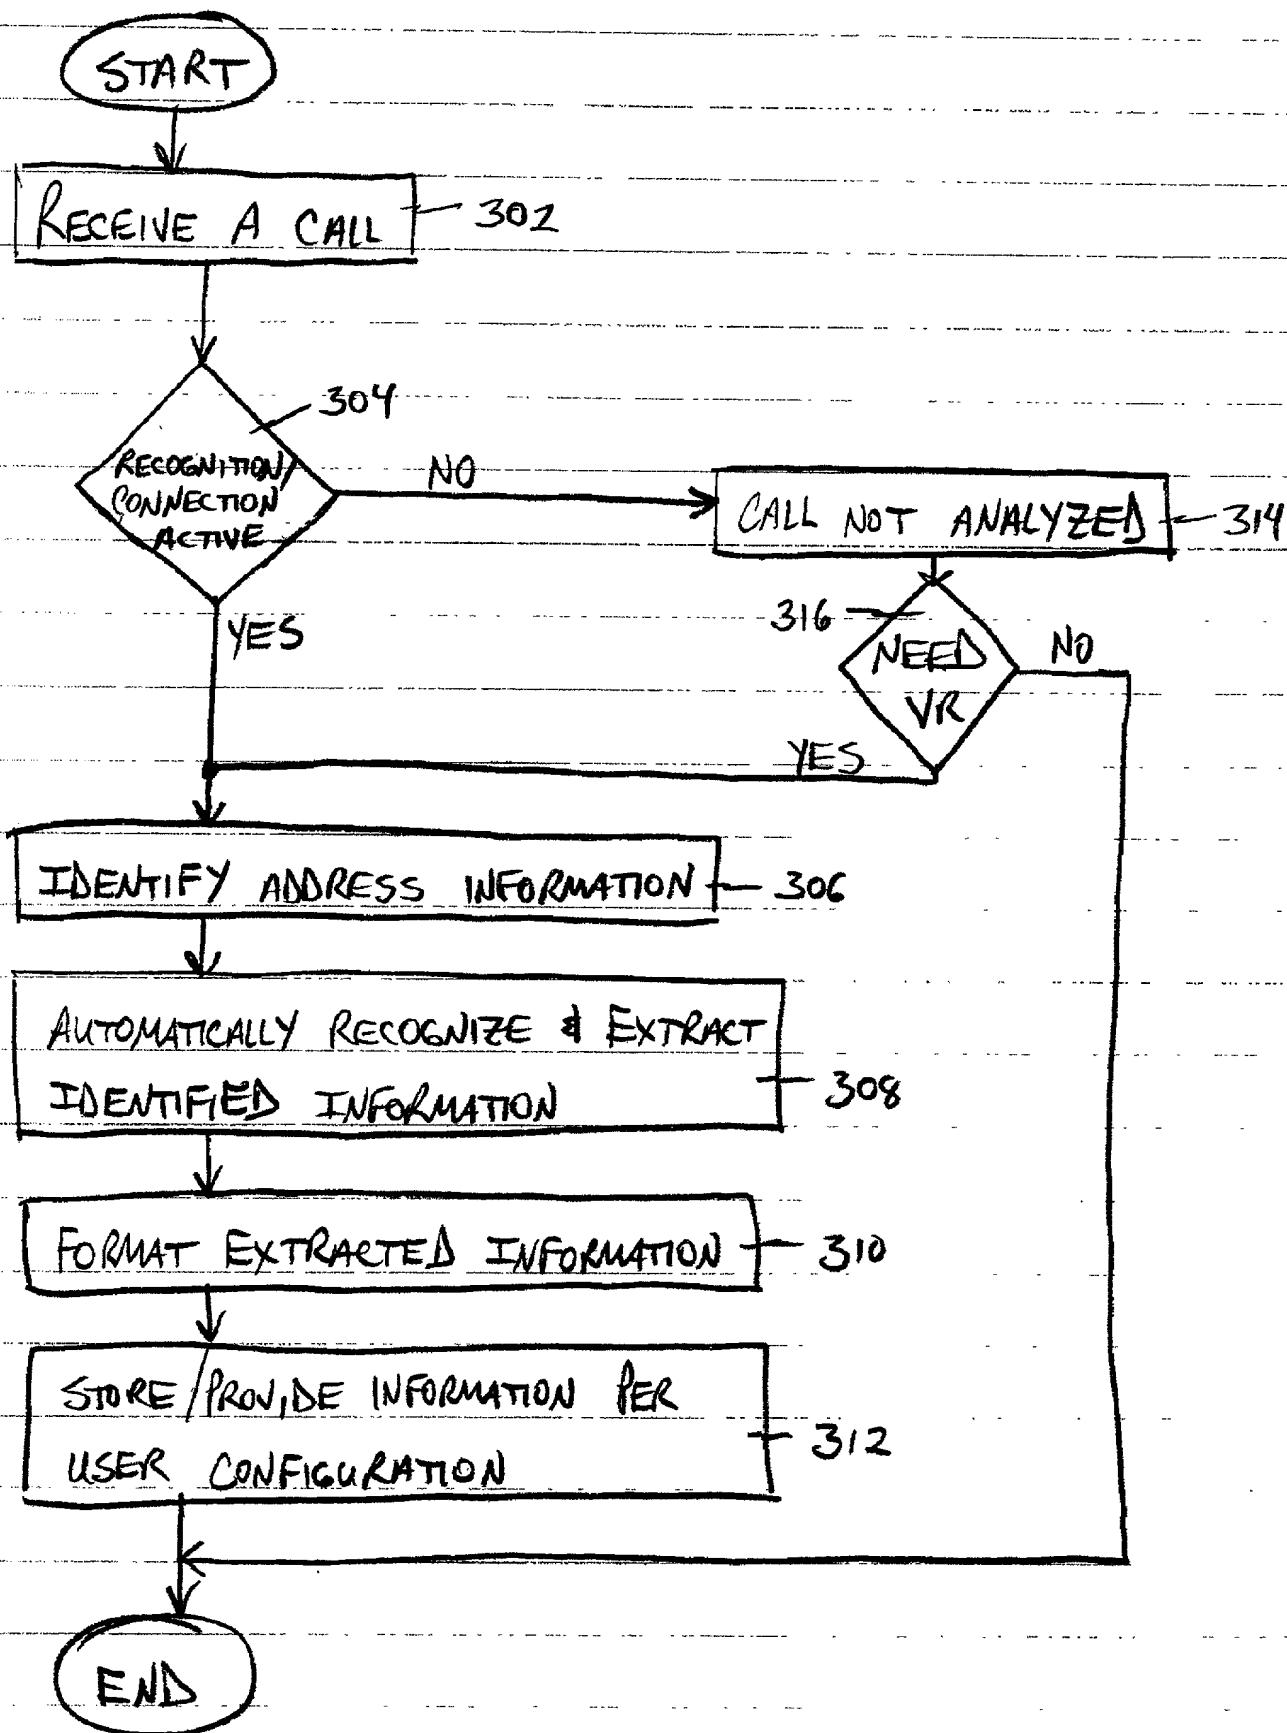 START
RECEIVE A CALL
302
304
RECOGNITION/
CONNECTION
ACTIVE
NO
CALL NOT ANALYZED
314
YES
316
NEED
VR
NO
YES
IDENTIFY ADDRESS INFORMATION
306
AUTOMATICALLY RECOGNIZE & EXTRACT
IDENTIFIED INFORMATION
308
FORMAT EXTRACTED INFORMATION
310
STORE/PROVIDE INFORMATION PER
USER CONFIGURATION
312
END